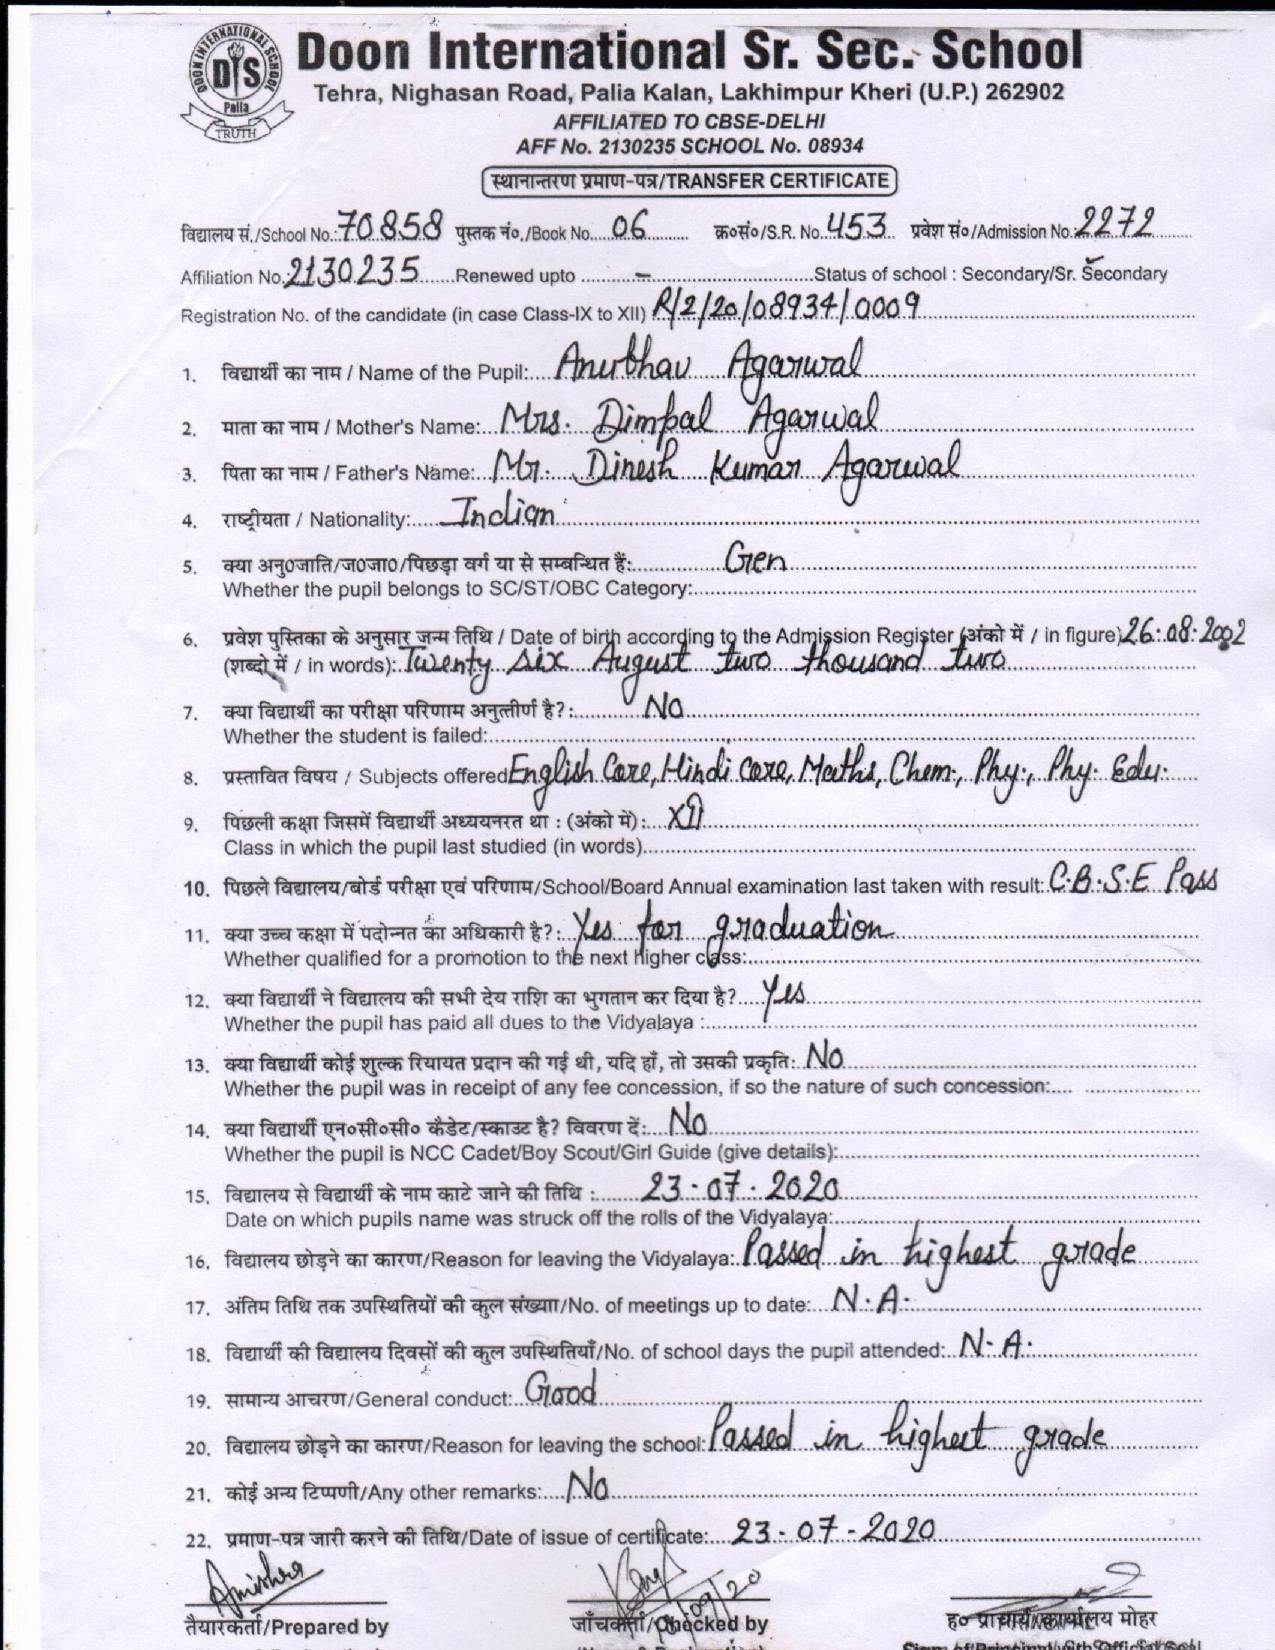 DOON INTERNATIONAL SCHOOL
DIS
Palia
TRUTH
Doon International Sr. Sec. School
Tehra, Nighasan Road, Palia Kalan, Lakhimpur Kheri (U.P.) 262902
AFFILIATED TO CBSE-DELHI
AFF No. 2130235 SCHOOL No. 08934
स्थानान्तरण प्रमाण-पत्र/TRANSFER CERTIFICATE
विद्यालय सं./School No.: 70858 पुस्तक नं०./Book No. 06 क्र०सं०/S.R. No. 453 प्रवेश सं०/Admission No. 2272
Affiliation No. 2130235 Renewed upto - Status of school : Secondary/Sr. Secondary
Registration No. of the candidate (in case Class-IX to XII) R/2/20/08934/0009
1. विद्यार्थी का नाम / Name of the Pupil: Anubhav Agarwal
2. माता का नाम / Mother's Name: Mrs. Dimpal Agarwal
3. पिता का नाम / Father's Name: Mr. Dinesh Kumar Agarwal
4. राष्ट्रीयता / Nationality: Indian
5. क्या अनु०जाति/ज०जा०/पिछड़ा वर्ग या से सम्बन्धित हैं: Gen
Whether the pupil belongs to SC/ST/OBC Category:
6. प्रवेश पुस्तिका के अनुसार जन्म तिथि / Date of birth according to the Admission Register (अंको में / in figure) 26.08.2002
(शब्दो में / in words): Twenty six August two thousand two
7. क्या विद्यार्थी का परीक्षा परिणाम अनुत्तीर्ण है?: No
Whether the student is failed:
8. प्रस्तावित विषय / Subjects offered English Core, Hindi Core, Maths, Chem., Phy., Phy. Edu.
9. पिछली कक्षा जिसमें विद्यार्थी अध्ययनरत था : (अंको में): XII
Class in which the pupil last studied (in words)
10. पिछले विद्यालय/बोर्ड परीक्षा एवं परिणाम/School/Board Annual examination last taken with result: C.B.S.E Pass
11. क्या उच्च कक्षा में पदोन्नत का अधिकारी है?: Yes for graduation
Whether qualified for a promotion to the next higher class:
12. क्या विद्यार्थी ने विद्यालय की सभी देय राशि का भुगतान कर दिया है? Yes
Whether the pupil has paid all dues to the Vidyalaya :
13. क्या विद्यार्थी कोई शुल्क रियायत प्रदान की गई थी, यदि हाँ, तो उसकी प्रकृति: No
Whether the pupil was in receipt of any fee concession, if so the nature of such concession:
14. क्या विद्यार्थी एन०सी०सी० कैडेट/स्काउट है? विवरण दें: No
Whether the pupil is NCC Cadet/Boy Scout/Girl Guide (give details):
15. विद्यालय से विद्यार्थी के नाम काटे जाने की तिथि : 23.07.2020
Date on which pupils name was struck off the rolls of the Vidyalaya:
16. विद्यालय छोड़ने का कारण/Reason for leaving the Vidyalaya: Passed in highest grade
17. अंतिम तिथि तक उपस्थितियों की कुल संख्या/No. of meetings up to date: N.A.
18. विद्यार्थी की विद्यालय दिवसों की कुल उपस्थितियाँ/No. of school days the pupil attended: N.A.
19. सामान्य आचरण/General conduct: Good
20. विद्यालय छोड़ने का कारण/Reason for leaving the school: Passed in highest grade
21. कोई अन्य टिप्पणी/Any other remarks: No
22. प्रमाण-पत्र जारी करने की तिथि/Date of issue of certificate: 23-07-2020
तैयारकर्ता/Prepared by जाँचकर्ता/Checked by ह० प्राचार्य/कार्यालय मोहर